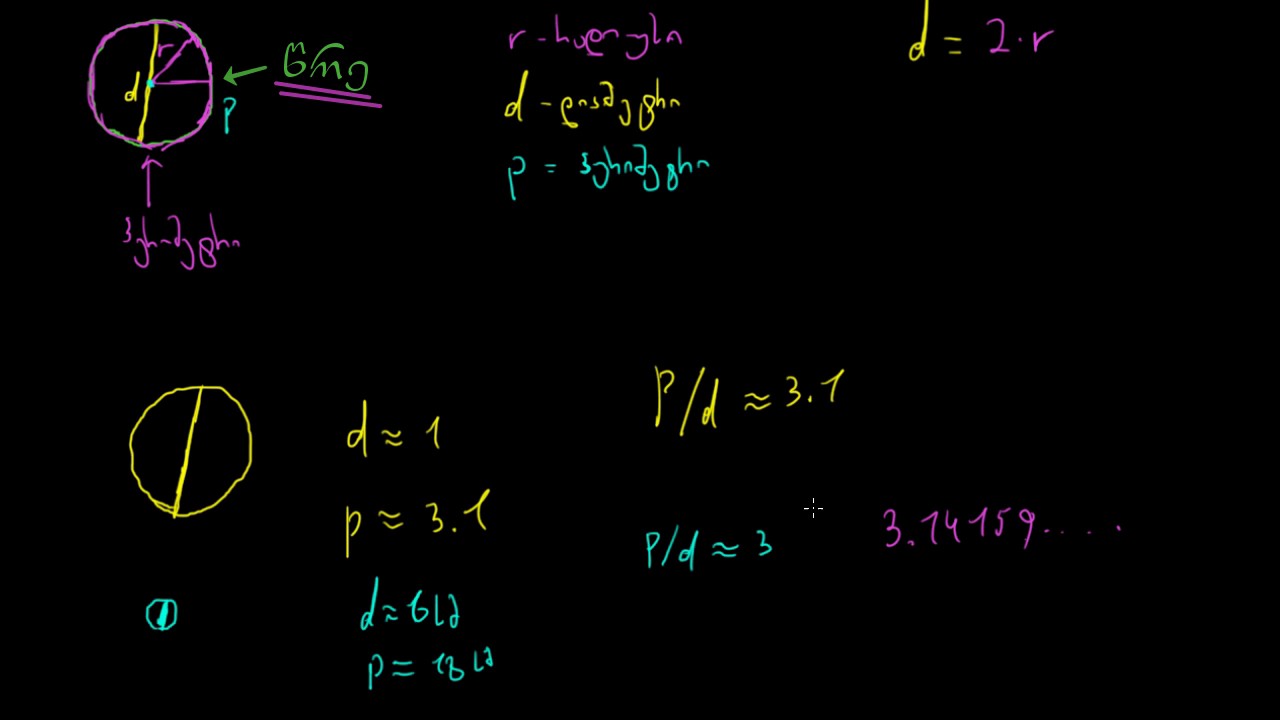 r
d
წრე
p
პერიმეტრი
r - რადიუსი
d - დიამეტრი
p = პერიმეტრი
d = 2·r
d ≈ 1
p ≈ 3.1
P/d ≈ 3.1
d ≈ 6სმ
p ≈ 18სმ
P/d ≈ 3
3.14159.....